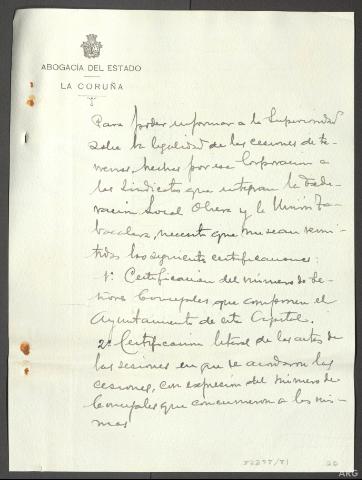 ABOGACIA DEL ESTADO
LA CORUÑA
Para poder informar a la Superioridad
sobre la legalidad de las cesiones de te-
rrenos, hechas por esa Corporacion a
los Sindicatos que integran la Fede-
racion Local Obrera y la Unión Ta-
bacalera, necesito que me sean remi-
tidas las siguientes certificaciones:
1ª Certificacion del número de Se-
ñores Concejales que componen el
Ayuntamiento de esta Capital.
2ª Certificacion literal de las actas de
las sesiones en que se acordaron las
cesiones, con expresion del número de
Concejales que concurrieron a las mis-
mas
ARG